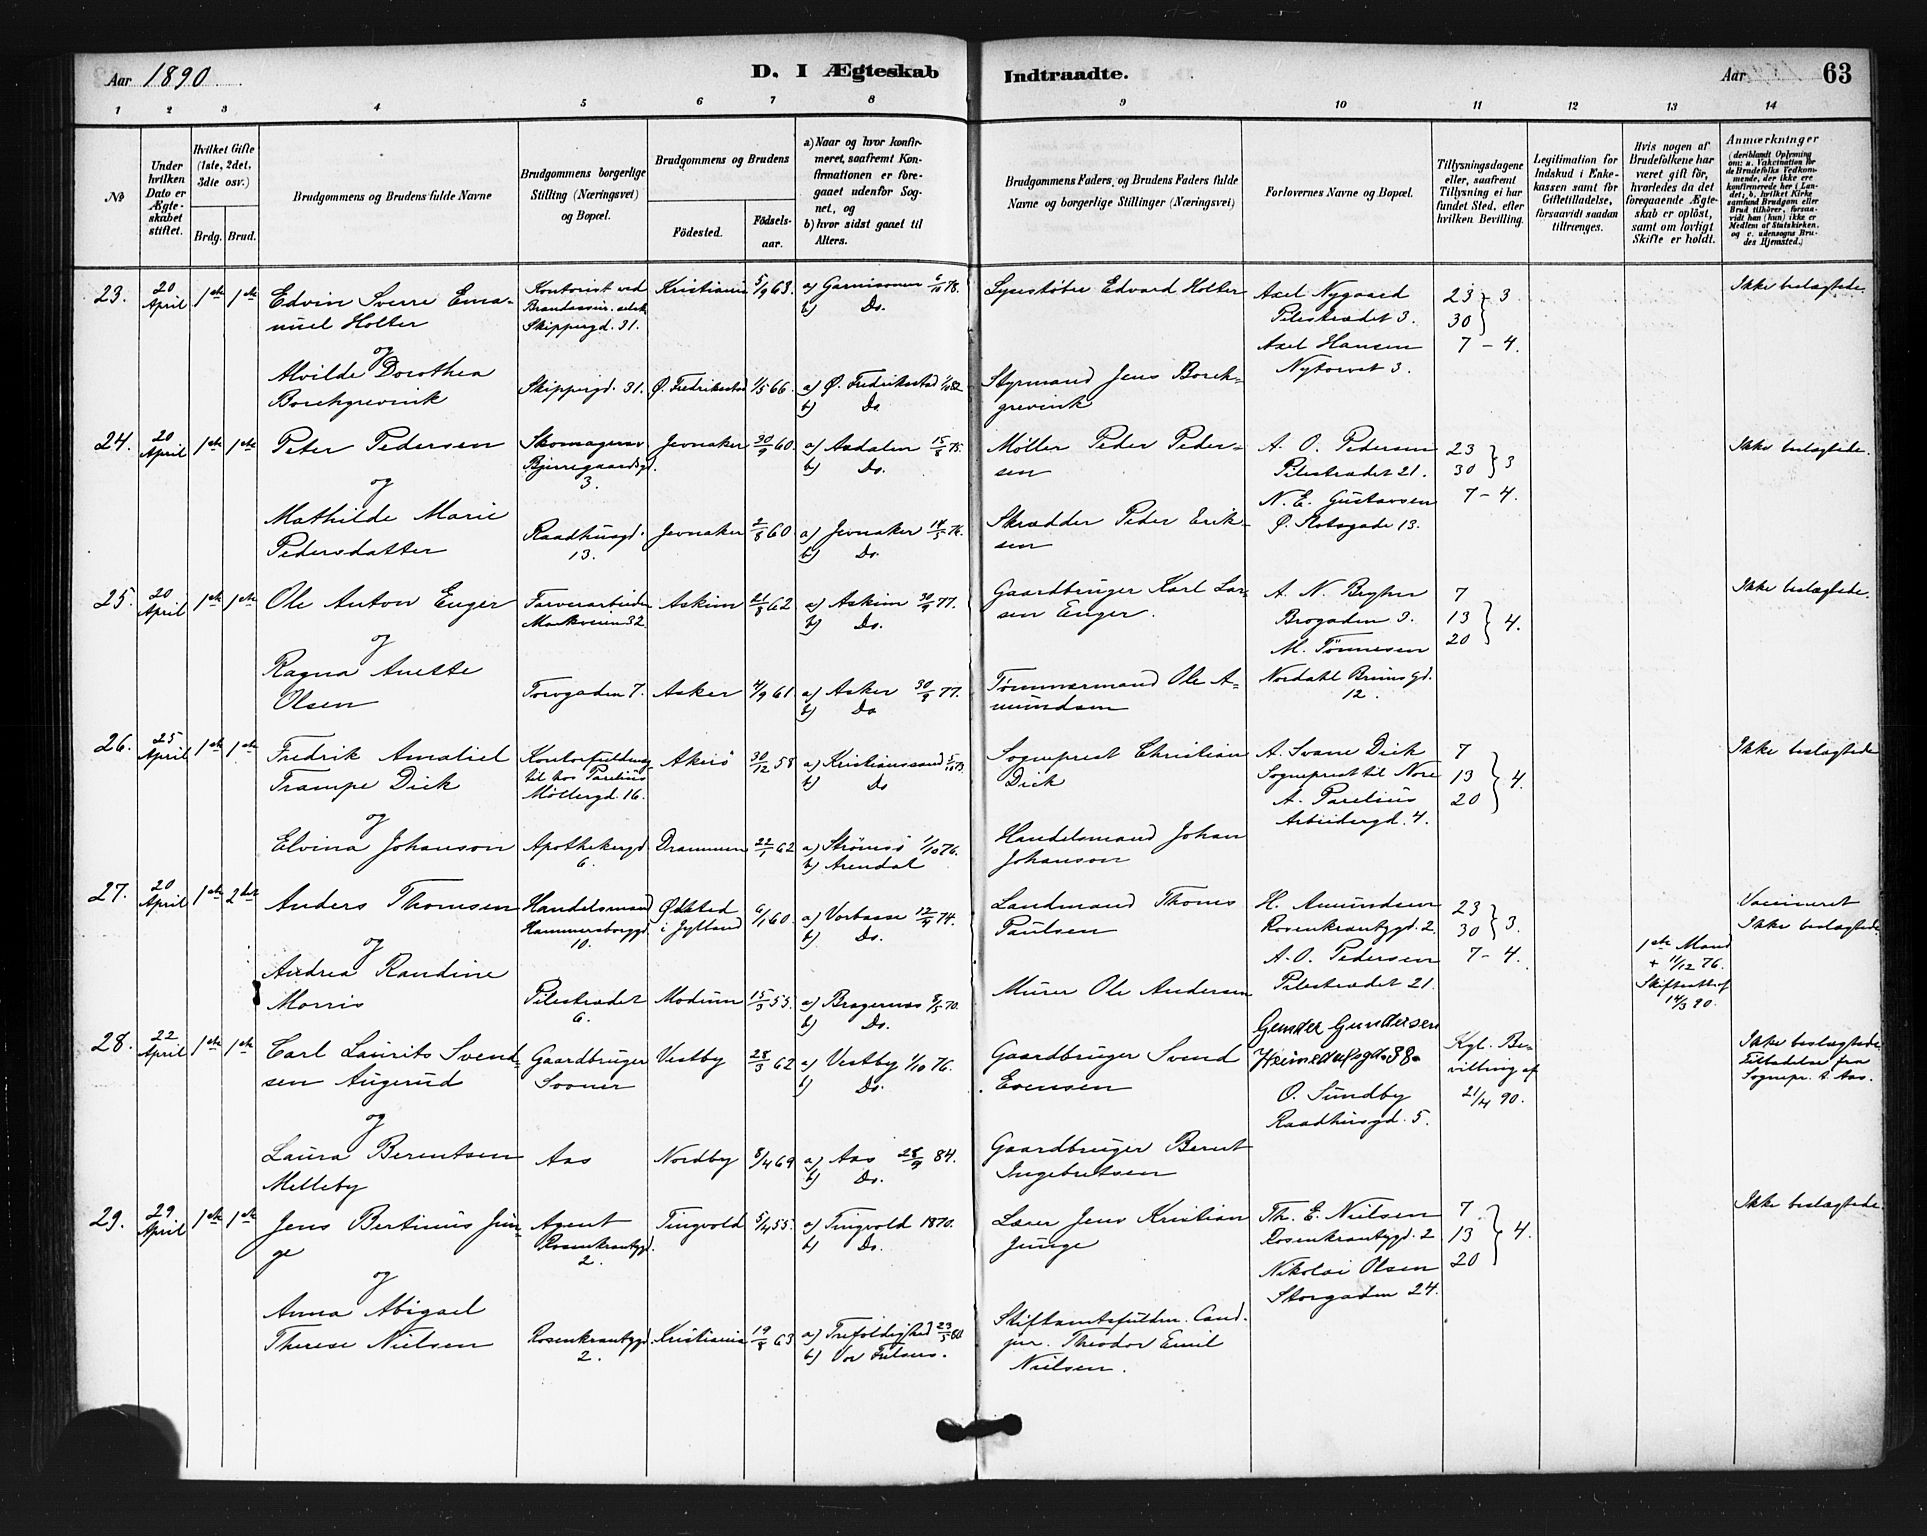 Aar 1890.
D. I Ægteskab
Indtraadte.
Aar
63
1 2 3 4 5 6 7 8 9 10 11 12 13 14
No
Under hvilken Dato er Ægteskabet stiftet.
Hvilket Gifte (1ste, 2det, 3die osv.)
Brdg. Brud.
Brudgommens og Brudens fulde Navne
Brudgommens borgerlige Stilling (Næringsvei) og Bopæl.
Brudgommens og Brudens
Fødested.
Fødselsaar.
a) Naar og hvor konfirmeret, saafremt Konfirmationen er foregaaet udenfor Sognet, og
b) hvor sidst gaaet til Alters.
Brudgommens Faders og Brudens Faders fulde Navne og borgerlige Stillinger (Næringsvei)
Forlovernes Navne og Bopæl.
Tillysningsdagene eller, saafremt Tillysning ei har fundet Sted, efter hvilken Bevilling.
Legitimation for Indskud i Enkekassen samt for Giftetilladelse, forsaavidt saadan tiltrænges.
Hvis nogen af Brudefolkene har været gift før, hvorledes da det foregaaende Ægteskab er opløst, samt om lovligt Skifte er holdt.
Anmærkninger
(deriblandt Oplysning om: a. Vakcination for de Brudefolks Vedkommende, der ikke ere konfirmerede her i Landet; b. hvilket Kirkesamfund Brudgom eller Brud tilhører, forsaavidt han (hun) ikke er Medlem af Statskirken, og c. udensogns Brudes Hjemsted.)
23. 20 April 1ste 1ste
Edvin Sverre Emanuel Holter
Kontorist ved
Skippergd. 31.
Kristiania 5/9 63.
a) Garnisonen 6/10 78.
b) Do.
Lysestøber Edvard Holter
Axel Nygaard
Pilestrædet 3.
Axel Hansen
Nytorvet 3.
23 } 3.
30
7 - 4.
Ikke beslægtede.
og
Alvilde Dorothea
Borchgrevink
Skippergd. 31.
Ø. Fredrikstad 1/5 66.
a) Ø. Fredrikstad 1/10 82.
b) Do.
Styrmand Jens Borchgrevink
24. 20 April 1ste 1ste
Peter Pedersen
Skomagersv.
Bjerregaardsgd.
3.
Jevnaker 30/9 60.
a) Aadalen 15/8 75.
b) Do.
Møller Peder Pedersen
A. O. Pedersen
Pilestrædet 21.
N. E. Gustavsen
Ø. Slotsgade 13.
23 } 3
30
7 - 4.
Ikke beslægtede.
og
Mathilde Marie
Pedersdatter
Raadhusgd.
13.
Jevnaker 2/8 60.
a) Jevnaker 14/5 76.
b) Do.
Skrædder Peder Eriksen
25. 20 April 1ste 1ste
Ole Anton Enger
Farverarbeider
Markveien 32.
Askim 21/8 62
a) Askim 30/9 77.
b) Do.
Gaardbruger Karl Larsen Enger.
A. N. Bryhn
Brogaden 3.
M. Tønnesen
Nordahl Brunsgd.
12.
7
13 } 4.
20
Ikke beslægtede.
og
Ragna Anette
Olsen
Torvgaden 7.
Asker 4/9 61.
a) Asker 30/9 77.
b) Do
Tømmermand Ole Amundsen
26. 25 April 1ste 1ste
Fredrik Amaliel
Trampe Dick
Kontorfuldmægtil hos Parelius
Møllergd. 16.
Akerø 30/12 58
a) Kristianssand
b) Do
Sogneprest Christian
Dick
A. Svane Dick
Sogneprest til Nore
A. Parelius
Arbeidergd. 4.
7
13 } 4.
20
Ikke beslægtede
og
Elvina Johanson
Apothekergd.
6.
Drammen 22/1 62
a) Strømsø 1/10 76.
b) Arendal
Handelsmand Johan
Johanson
27. 20 April 1ste 2det
Anders Thomsen
Handelsmand
Hammersborggd.
10.
Ødsted
i Jylland
6/1 60.
a) Vorbasse 12/4 74.
b) Do.
Landmand Thoms
Paulsen
H. Amundsen
Rosenkrantzgd. 2.
A. O. Pedersen
Pilestrædet 21.
23 } 3.
30
7 - 4.
Vaccineret
Ikke beslægtede.
1ste Mand
+ 11/12 76.
Skifteatt. af
14/3 90.
og
Andrea Randine
Morris
Pilestrædet
6.
Modum 15/3 55.
a) Bragernes 8/5 70.
b) Do.
Murer Ole Andersen
28. 22 April 1ste 1ste
Carl Laurits Svendsen Augerud
Gaardbruger
Sooner
Vestby 28/3 62
a) Vestby 1/10 76.
b) Do.
Gaardbruger Svend
Evensen
Gunder Gundersen
Heimdalsgd. 38.
O. Sundby
Raadhusgd. 5.
Kgl. Bevilling af
21/4 90.
Ikke beslægtede.
Tilladelse fra
Sognepr. i Aas.
og
Laura Berentsen
Melleby
Aas
Nordby 8/4 69
a) Aas 28/9 84.
b) Do.
Gaardbruger Bernt
Ingebretsen
29. 29 April 1ste 1ste
Jens Bertinus Junge
Agent
Rosenkrantzgd.
2.
Tingvold 5/4 55.
a) Tingvold 1870.
b) Do.
Lærer Jens Kristian
Junge
Th. E. Nielsen
Rosenkrantzgd. 2
Nikolai Olsen
Storgaden 24.
7
13 } 4.
20
Ikke beslægtede
og
Anna Abigael
Therese Nielsen
Rosenkrantzgd.
2.
Kristiania 19/8 63
a) Trefoldighed 23/5 80
b) Vor Frelsers.
Skiftamtsfuldm. Cand.
jur. Theodor Emil
Nielsen.